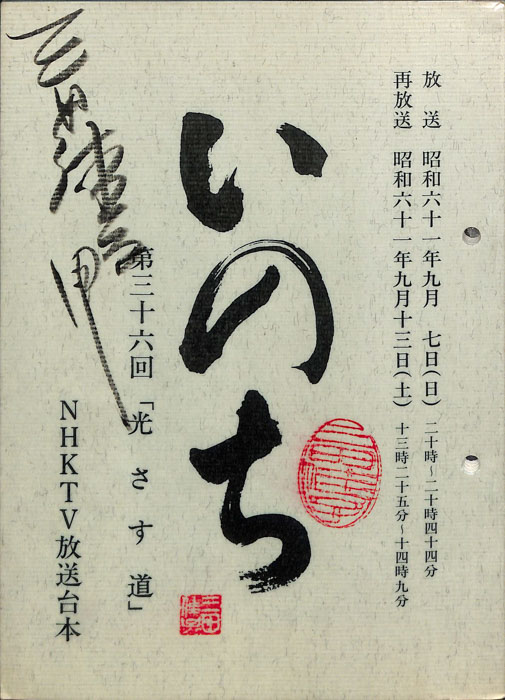 放送 昭和六十一年九月 七日(日) 二十時~二十時四十四分
再放送 昭和六十一年九月十三日(土) 十三時二十五分~十四時九分
いのち
第三十六回「光さす道」
NHKTV放送台本